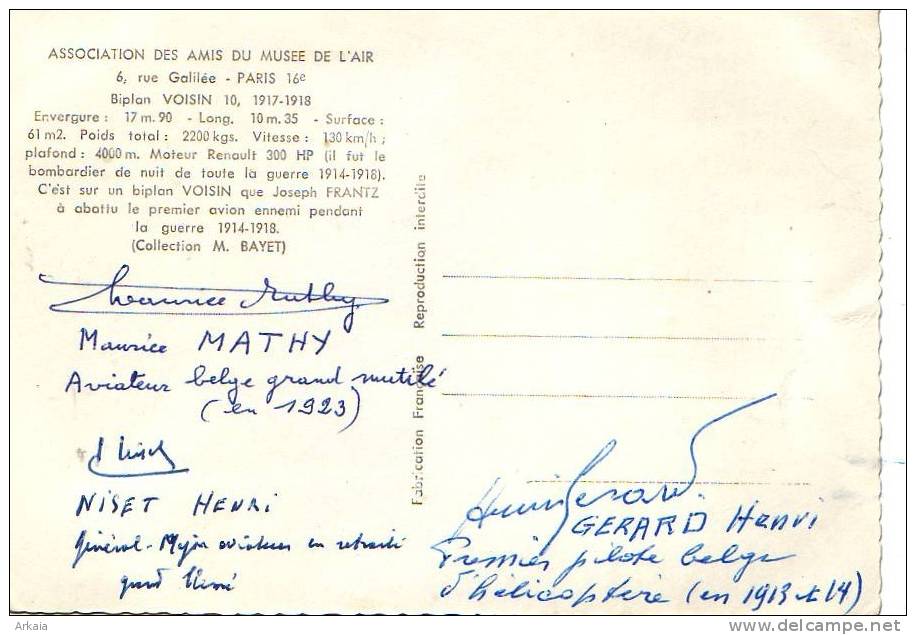 ASSOCIATION DES AMIS DU MUSEE DE L'AIR
6, rue Galilée - PARIS 16e
Biplan VOISIN 10, 1917-1918
Envergure : 17 m. 90 - Long. 10 m. 35 - Surface :
61 m2. Poids total : 2200 kgs. Vitesse : 130 km/h ;
plafond : 4000 m. Moteur Renault 300 HP (il fut le
bombardier de nuit de toute la guerre 1914-1918).
C'est sur un biplan VOISIN que Joseph FRANTZ
à abattu le premier avion ennemi pendant
la guerre 1914-1918.
(Collection M. BAYET)
Fabrication Française Reproduction interdite
Maurice Mathy
Maurice MATHY
Aviateur belge grand mutilé
(en 1923)
NISET HENRI
Général-Major aviateur en retraite
grand
Henri Gerard
GERARD Henri
Premier pilote belge
d'hélicoptère (en 1913 et 14)
Arkaia
www.delcampe.net